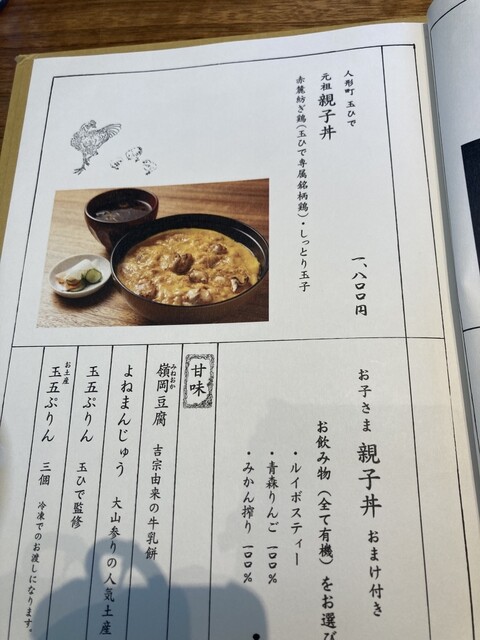 人形町 玉ひで
元祖 親子丼
赤麓紡ぎ鶏(玉ひで専属銘柄鶏)・しっとり玉子
一、八〇〇円
お子さま 親子丼 おまけ付き
お飲み物(全て有機)をお選び
・ルイボスティー
・青森りんご 一〇〇%
・みかん搾り 一〇〇%
甘味
嶺岡豆腐 吉宗由来の牛乳餅
みねおか
よねまんじゅう 大山参りの人気土産
玉五ぷりん 玉ひで監修
お土産
玉五ぷりん 三個 冷凍でのお渡しになります。